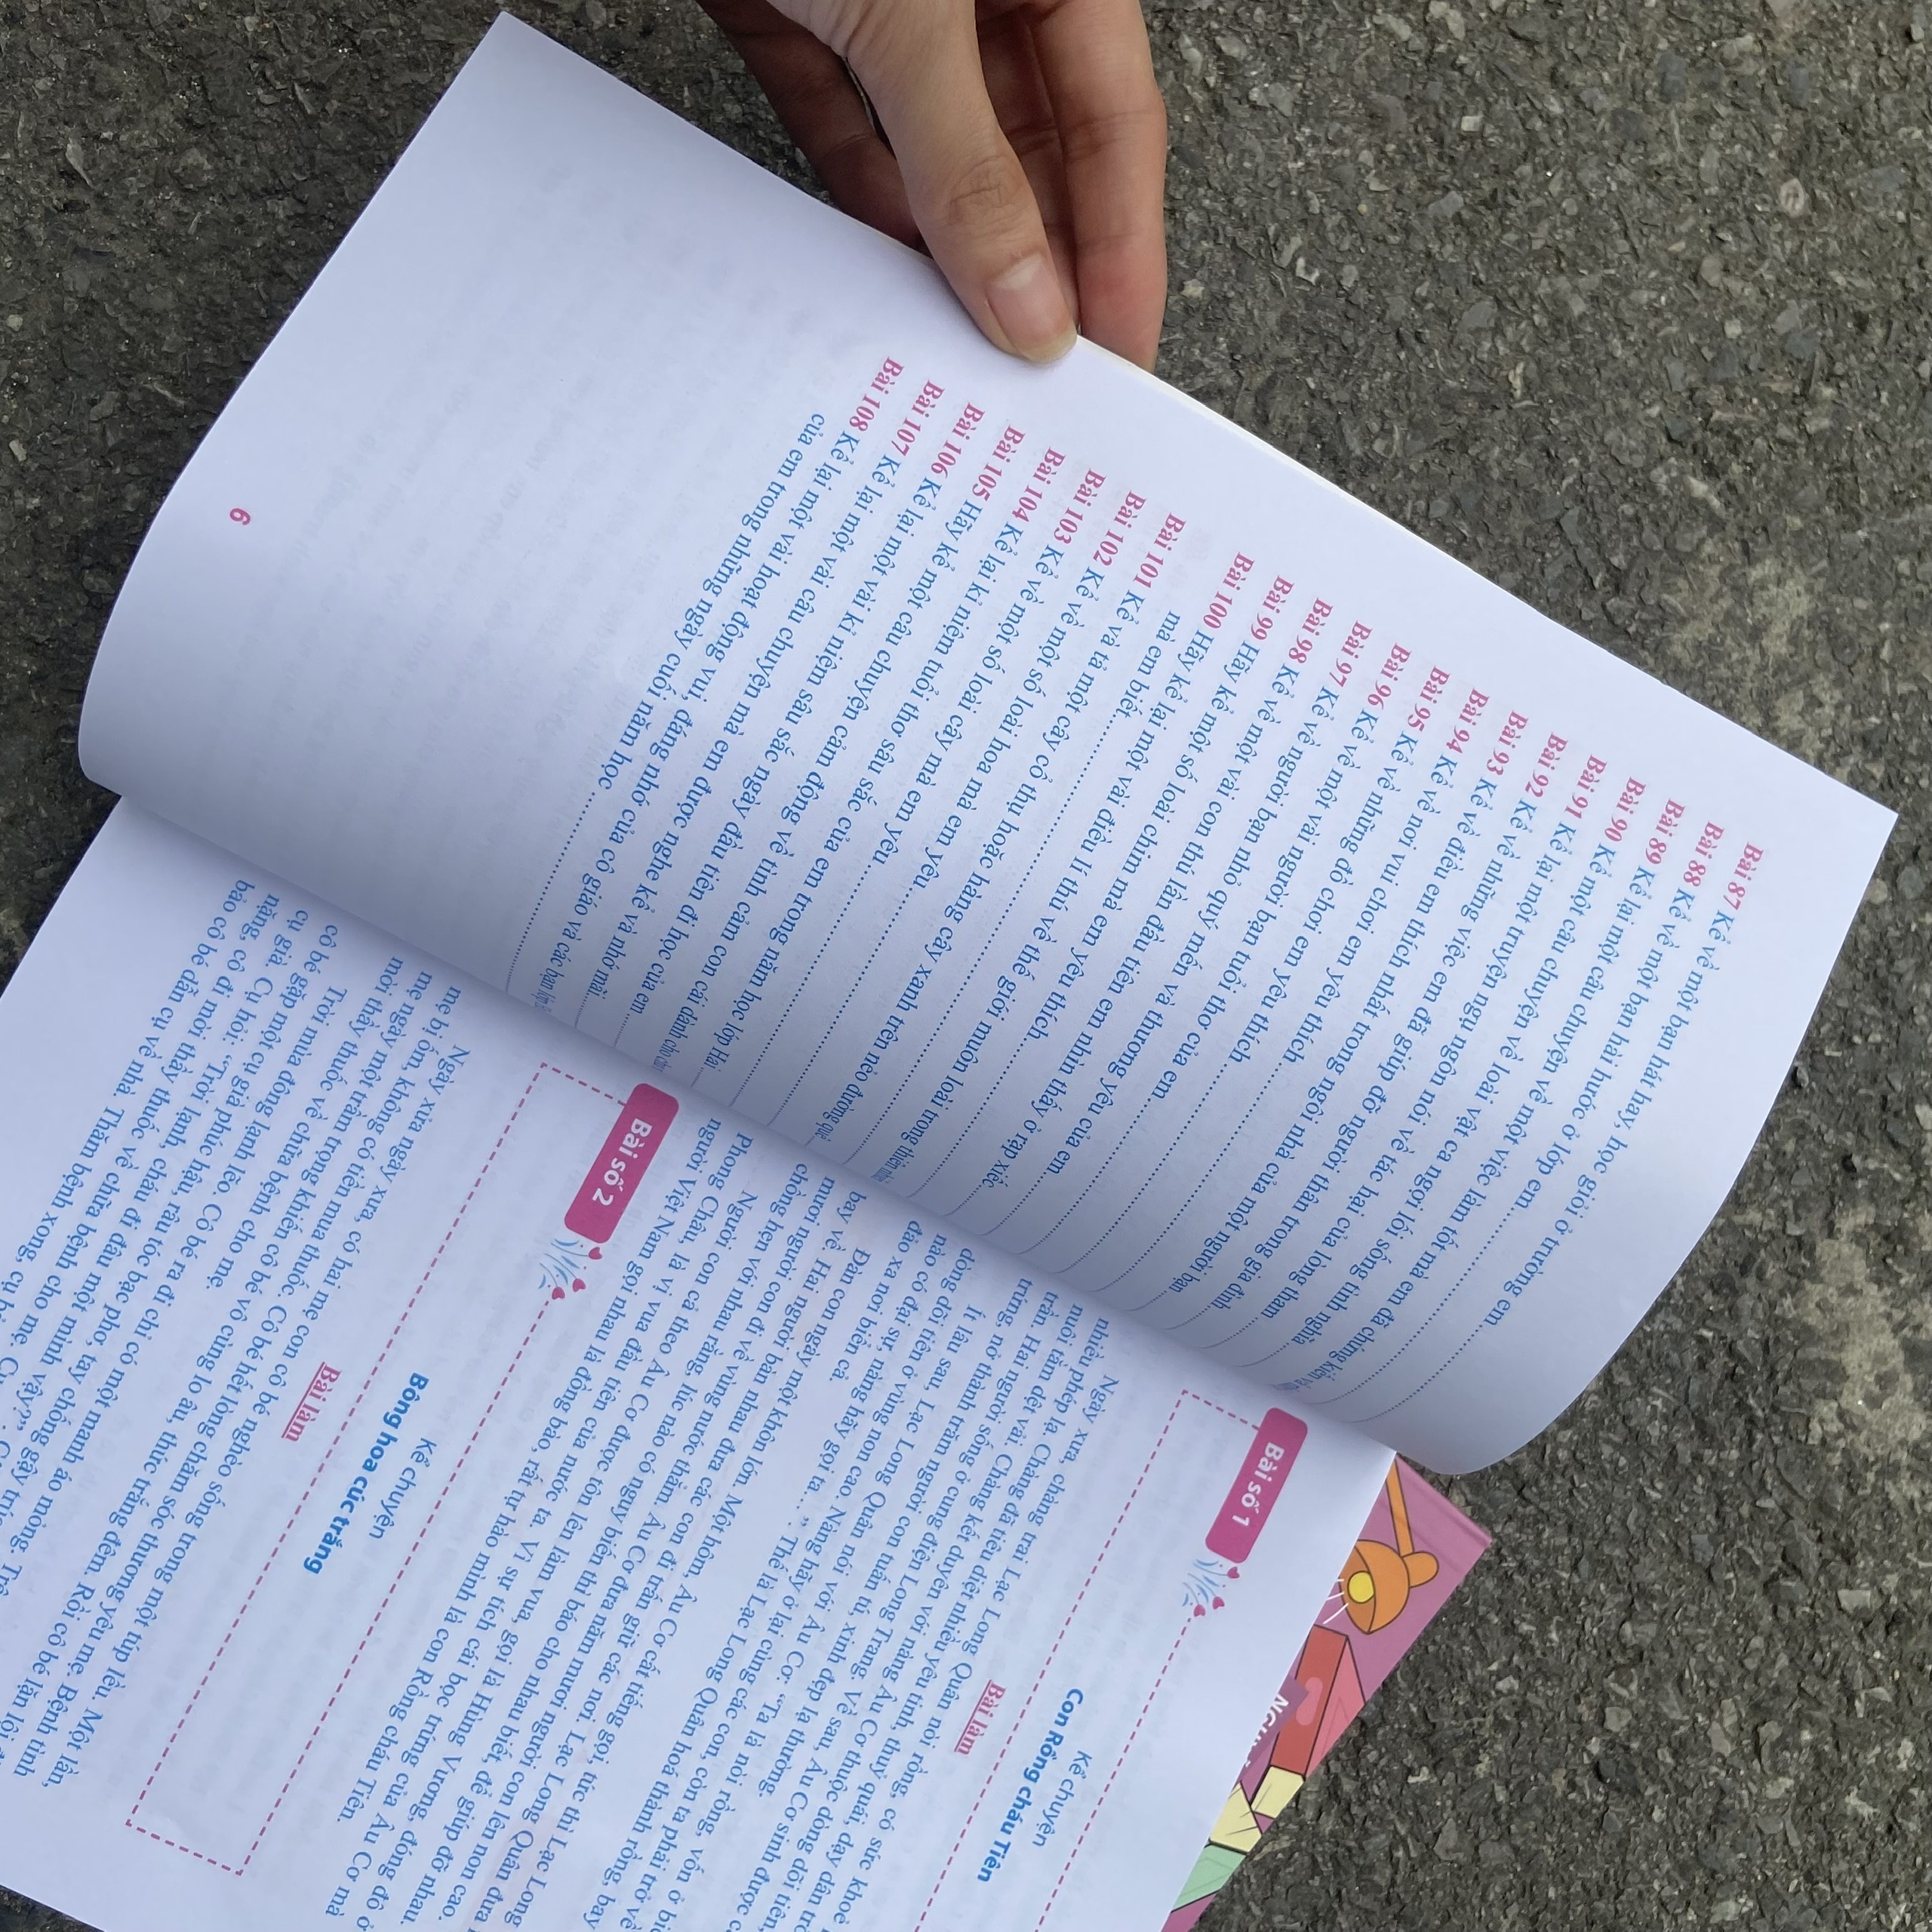 Bài 87 Kể về một bạn hát hay, học giỏi ở trường em
Bài 88 Kể về một bạn hài hước ở lớp em
Bài 89 Kể lại một câu chuyện về một việc làm tốt mà em đã chứng kiến
Bài 90 Kể một câu chuyện về loài vật ca ngợi lối sống tình nghĩa
Bài 91 Kể lại một truyện ngụ ngôn nói về tác hại của lòng tham
Bài 92 Kể về những việc em đã giúp đỡ người thân trong gia đình
Bài 93 Kể về điều em thích nhất trong ngôi nhà của một người bạn
Bài 94 Kể về nơi vui chơi em yêu thích
Bài 95 Kể về những đồ chơi em yêu thích
Bài 96 Kể về một vài người bạn tuổi thơ của em
Bài 97 Kể về người bạn nhỏ quý mến và thương yêu của em
Bài 98 Kể về một vài con thú lần đầu tiên em nhìn thấy ở rạp xiếc
Bài 99 Hãy kể một số loài chim mà em yêu thích
Bài 100 Hãy kể lại một vài điều lí thú về thế giới muôn loài trong thiên nhiên
mà em biết
Bài 101 Kể và tả một cây cổ thụ hoặc hàng cây xanh trên nẻo đường quê
Bài 102 Kể về một số loài hoa mà em yêu
Bài 103 Kể về một số loài cây mà em yêu
Bài 104 Kể lại kỉ niệm tuổi thơ sâu sắc của em
Bài 105 Hãy kể một câu chuyện cảm động về tình cảm con cái dành cho cha
Bài 106 Kể lại một vài kỉ niệm sâu sắc của em trong năm học lớp Hai
Bài 107 Kể lại một vài câu chuyện mà em được nghe kể và nhớ mãi
Bài 108 Kể lại một vài hoạt động vui, đáng nhớ của cô giáo và các bạn lớp
của em trong những ngày cuối năm học
6
Bài số 1
Kể chuyện
Con Rồng cháu Tiên
Bài làm
Ngày xưa, chàng trai Lạc Long Quân nòi rồng, có sức khoẻ
nhiều phép lạ. Chàng đã tiêu diệt nhiều yêu tinh, thuỷ quái, dạy dân
nuôi tằm dệt vải. Chàng kết duyên với nàng Âu Cơ thuộc dòng dõi tiên,
trần. Hai người sống ở cung điện Long Trang. Về sau, Âu Cơ sinh được
trứng, nở thành trăm người con tuấn tú, xinh đẹp lạ thường.
Ít lâu sau, Lạc Long Quân nói với Âu Cơ: "Ta là nòi rồng, vốn ở
dòng dõi tiên ở vùng non cao. Nàng hãy ở lại cùng các con, còn ta phải trở về
nào có đại sự, nàng hãy gọi ta…". Thế là Lạc Long Quân hoá thành rồng, bay
đảo xa nơi biển cả.
Đàn con ngày một khôn lớn. Một hôm, Âu Cơ cất tiếng gọi, tức thì Lạc Long
bay về. Hai người bàn nhau đưa các con đi trấn giữ các nơi. Lạc Long Quân đưa
mươi người con đi về vùng nước thẳm. Âu Cơ đưa năm mươi người con lên non cao.
chồng hẹn với nhau rằng, lúc nào có nguy biến thì báo cho nhau biết, để giúp đỡ nhau.
Người con cả theo Âu Cơ được tôn lên làm vua, gọi là Hùng Vương, đóng đô ở
Phong Châu, là vị vua đầu tiên của nước ta. Vì sự tích cái bọc trứng của Âu Cơ mà
người Việt Nam gọi nhau là đồng bào, rất tự hào mình là con Rồng cháu Tiên.
Bài số 2
Kể chuyện
Bông hoa cúc trắng
Bài làm
Ngày xửa ngày xưa, có hai mẹ con cô bé nghèo sống trong một túp lều. Một lần,
mẹ bị ốm, không có tiền mua thuốc. Cô bé hết lòng chăm sóc thương yêu mẹ. Bệnh tình
mẹ ngày một trầm trọng khiến cô bé vô cùng lo âu, thức trắng đêm. Rồi cô bé lặn lội
mời thầy thuốc về chữa bệnh cho mẹ.
Trời mùa đông lạnh lẽo. Cô bé ra đi chỉ có một manh áo mỏng.
cô bé gặp một cụ già phúc hậu, râu tóc bạc phơ, tay chống gậy
cụ già. Cụ hỏi: "Trời lạnh, cháu đi đâu một mình vậy?".
nắng, cô đi mời thầy thuốc về chữa bệnh cho mẹ.
bảo cô bé dẫn cụ về nhà. Thăm bệnh xong, cụ